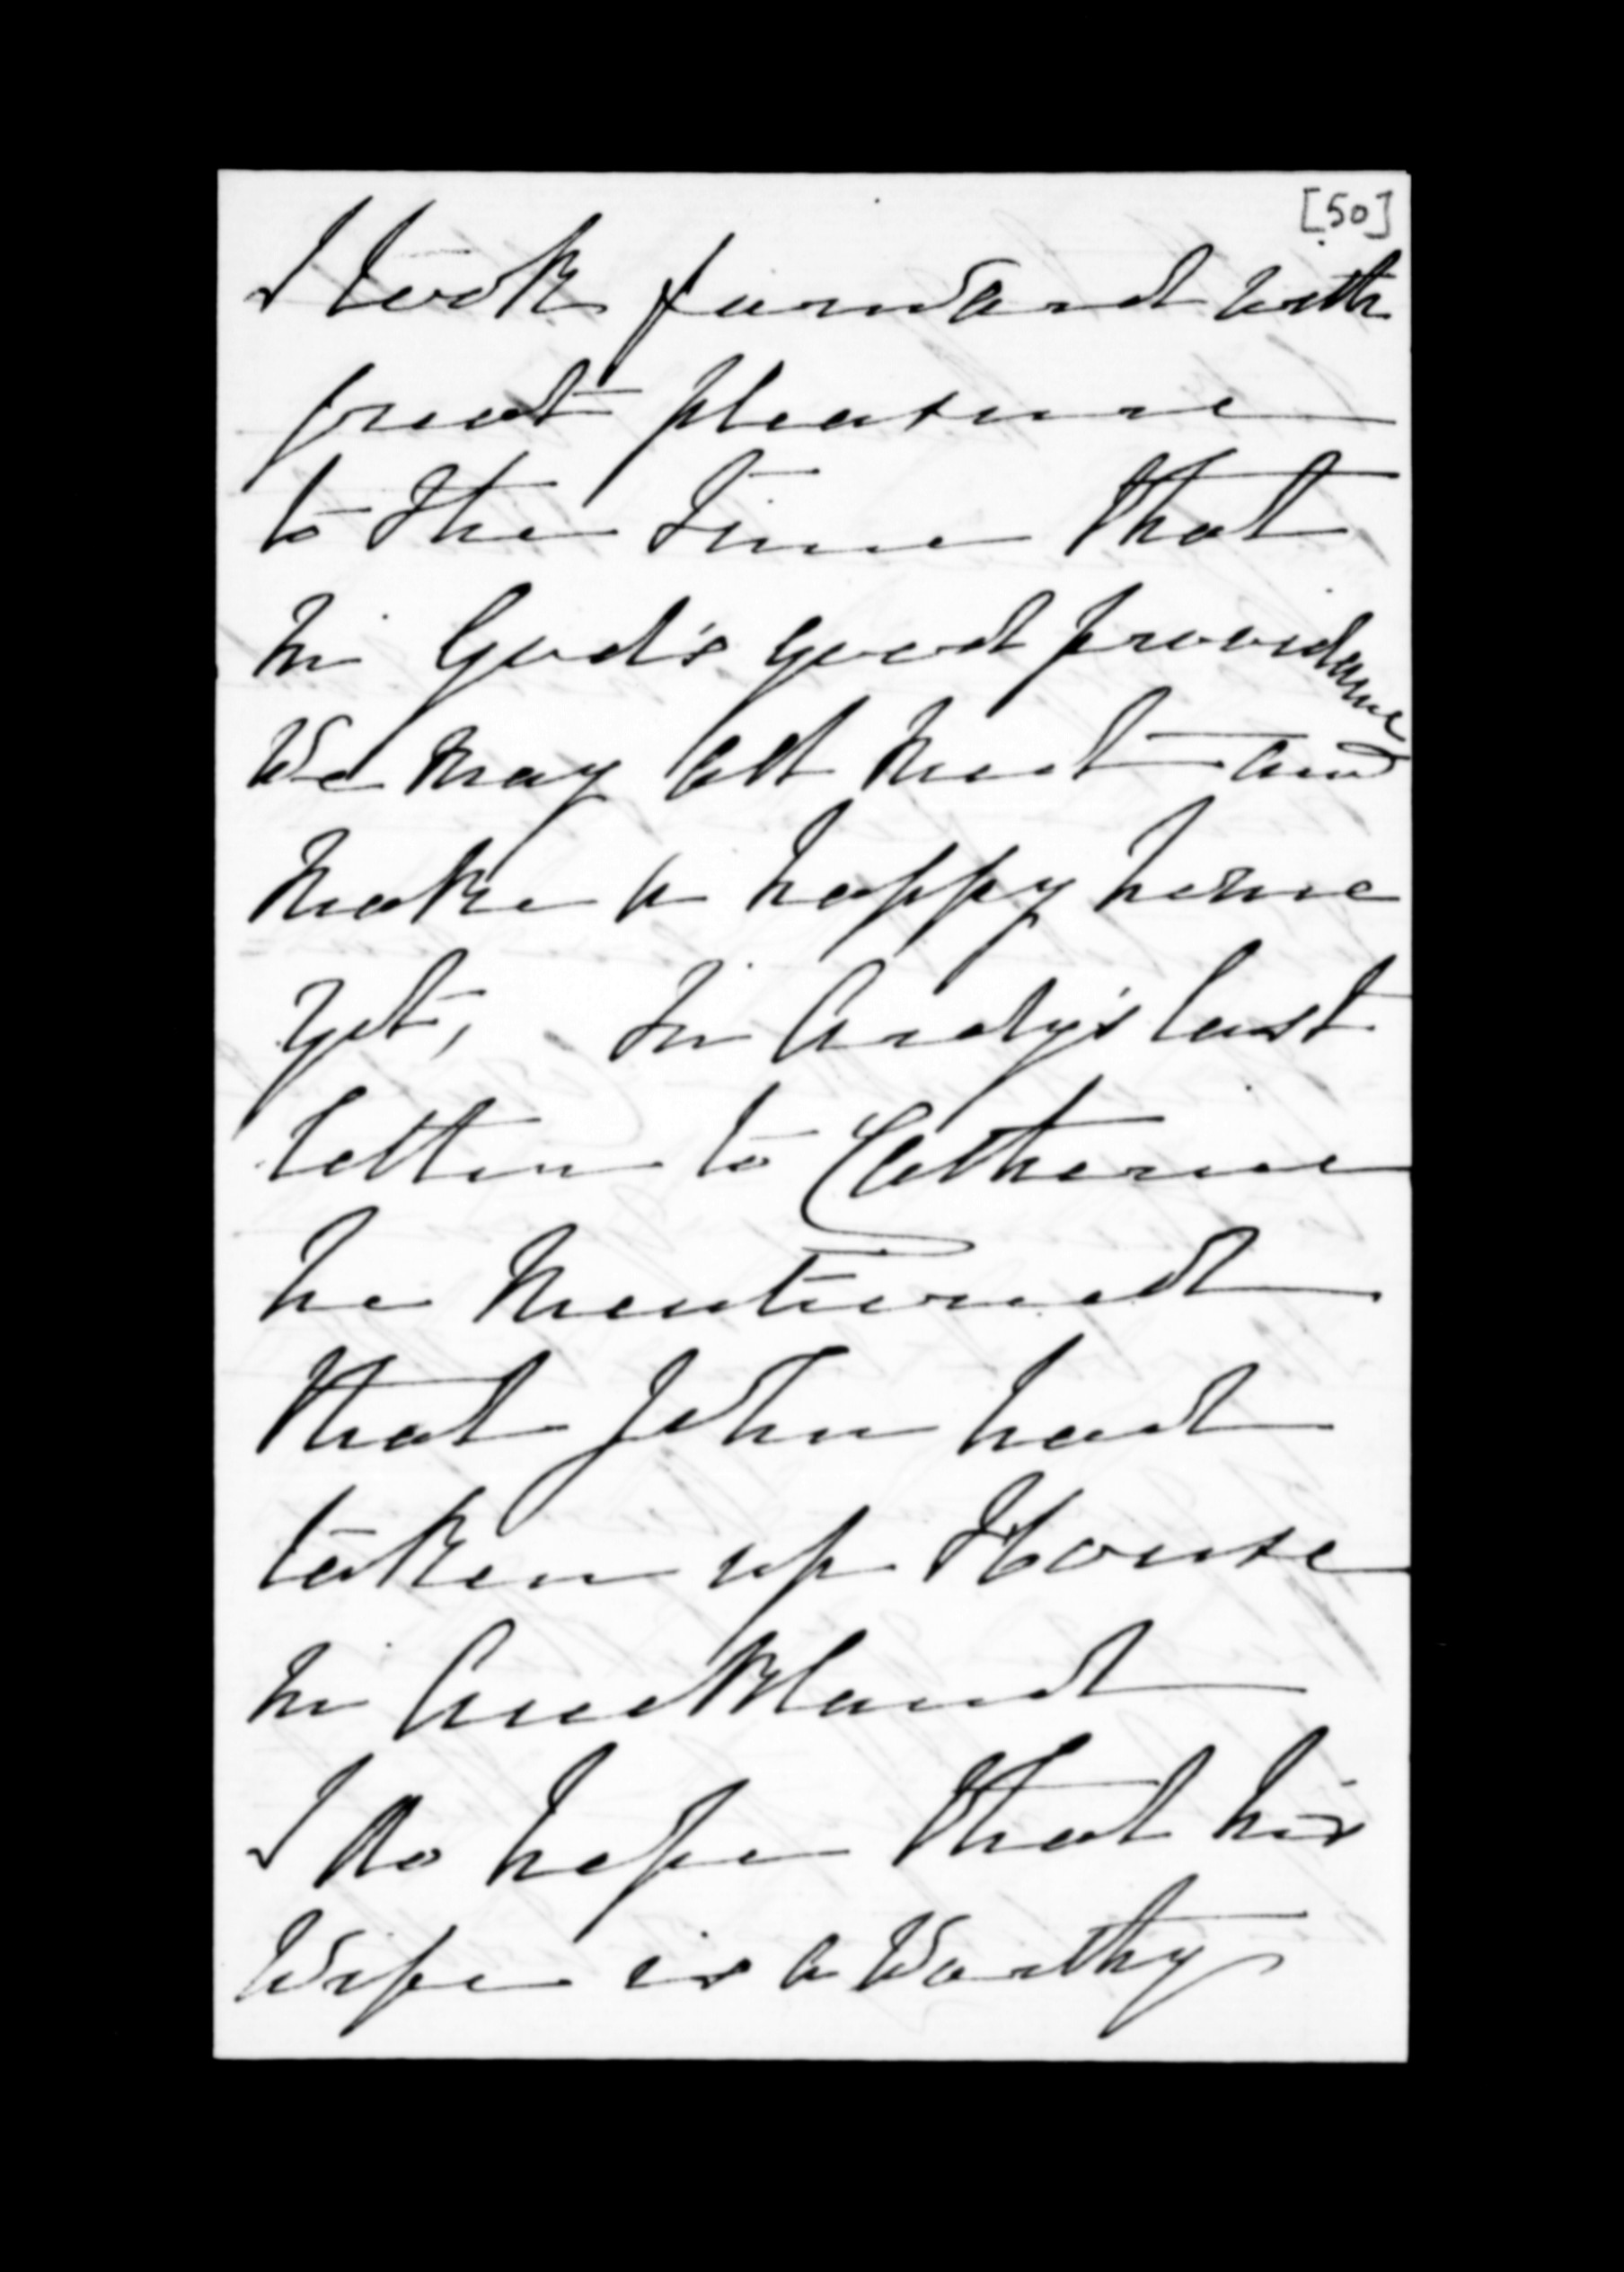 [50]
I look forward with
great pleasure
to the time that
in God's good providence
We may all meet and
make a happy home
yet, In Andy's last
letter to Catherine
he mentioned
that John had
taken up House
in Auckland
I do hope that his
Wife is a Worthy